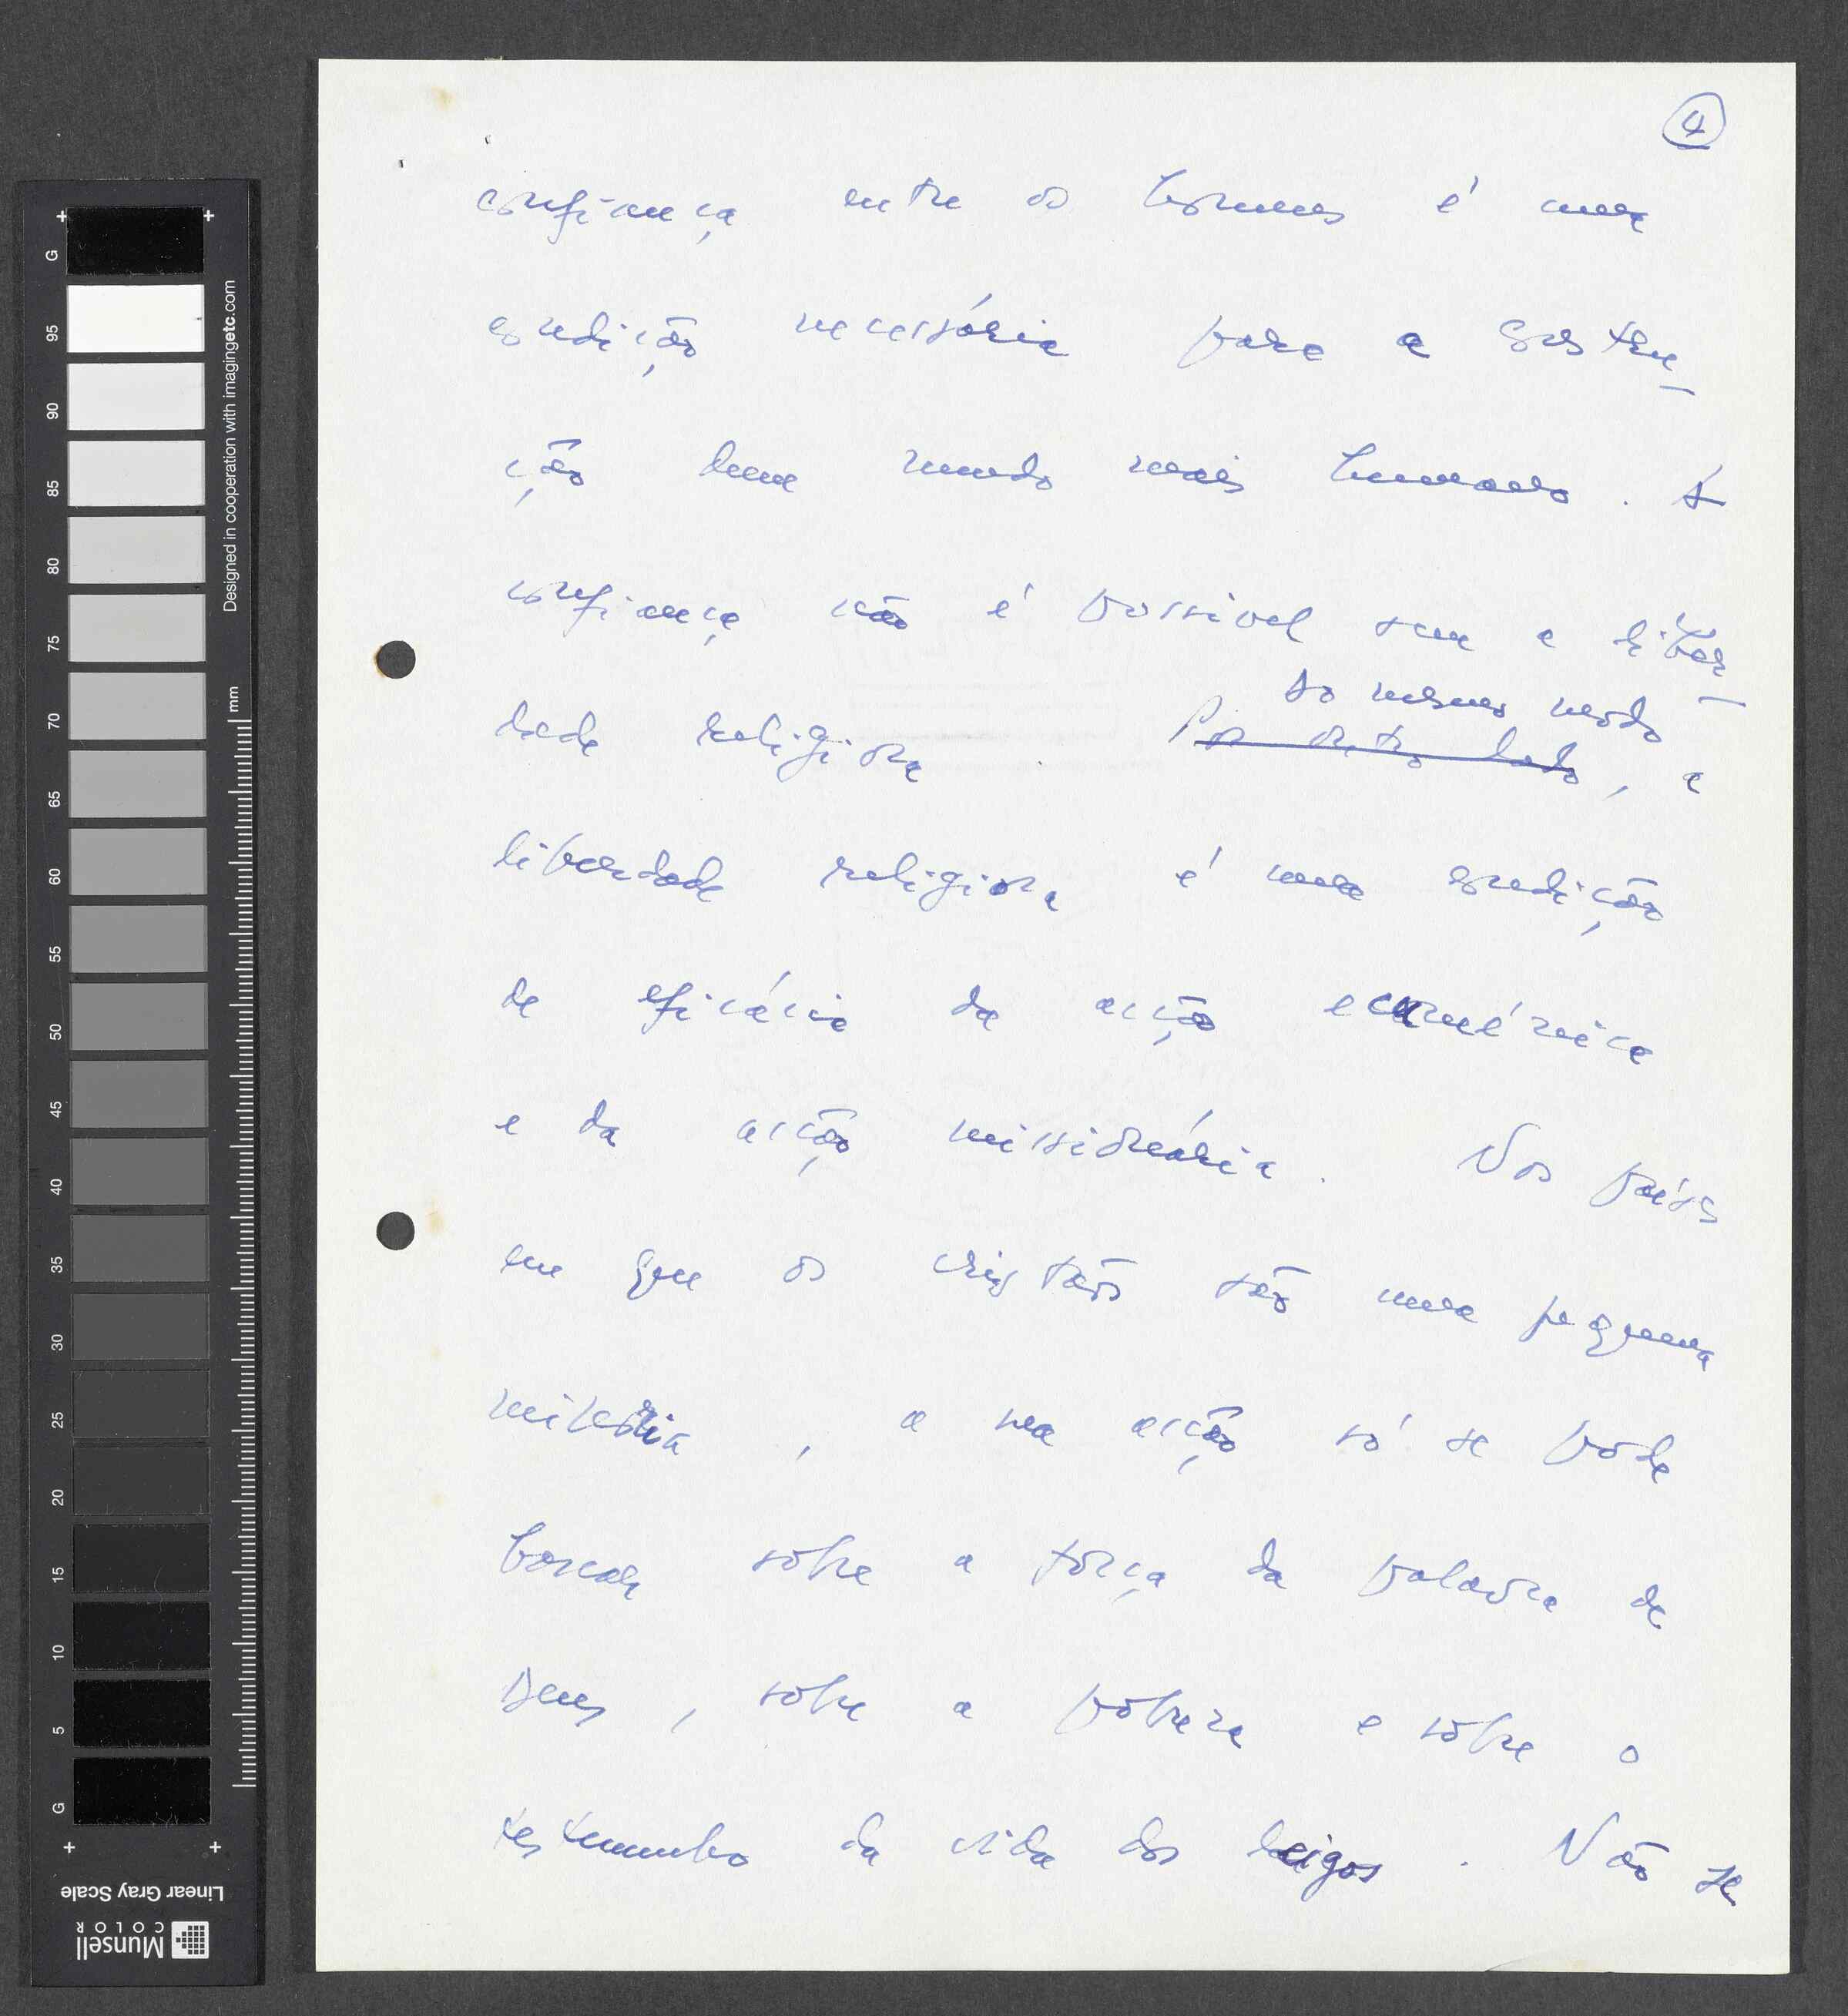 4
confiança entre os homens é uma
condição necessária para a constru-
ção dum mundo mais humano. A
confiança não é possivel sem a liber-
do mesmo modo
dade religiosa. Por outro lado, a
liberdade religiosa é uma condição
de eficácia da acção ecuménica
e da acção missionária. Nos países
em que os cristãos são uma pequena
minoria, a sua acção só se pode
basear sobre a força da palavra de
Deus, sobre a pobreza e sobre o
testemunho da vida dos leigos. Não se
G
95
90
85
80
75
70
65
60
55
50
45
40
35
30
25
20
15
10
5
G
Designed in cooperation with imagingetc.com
mm
Linear Gray Scale
Munsell
COLOR